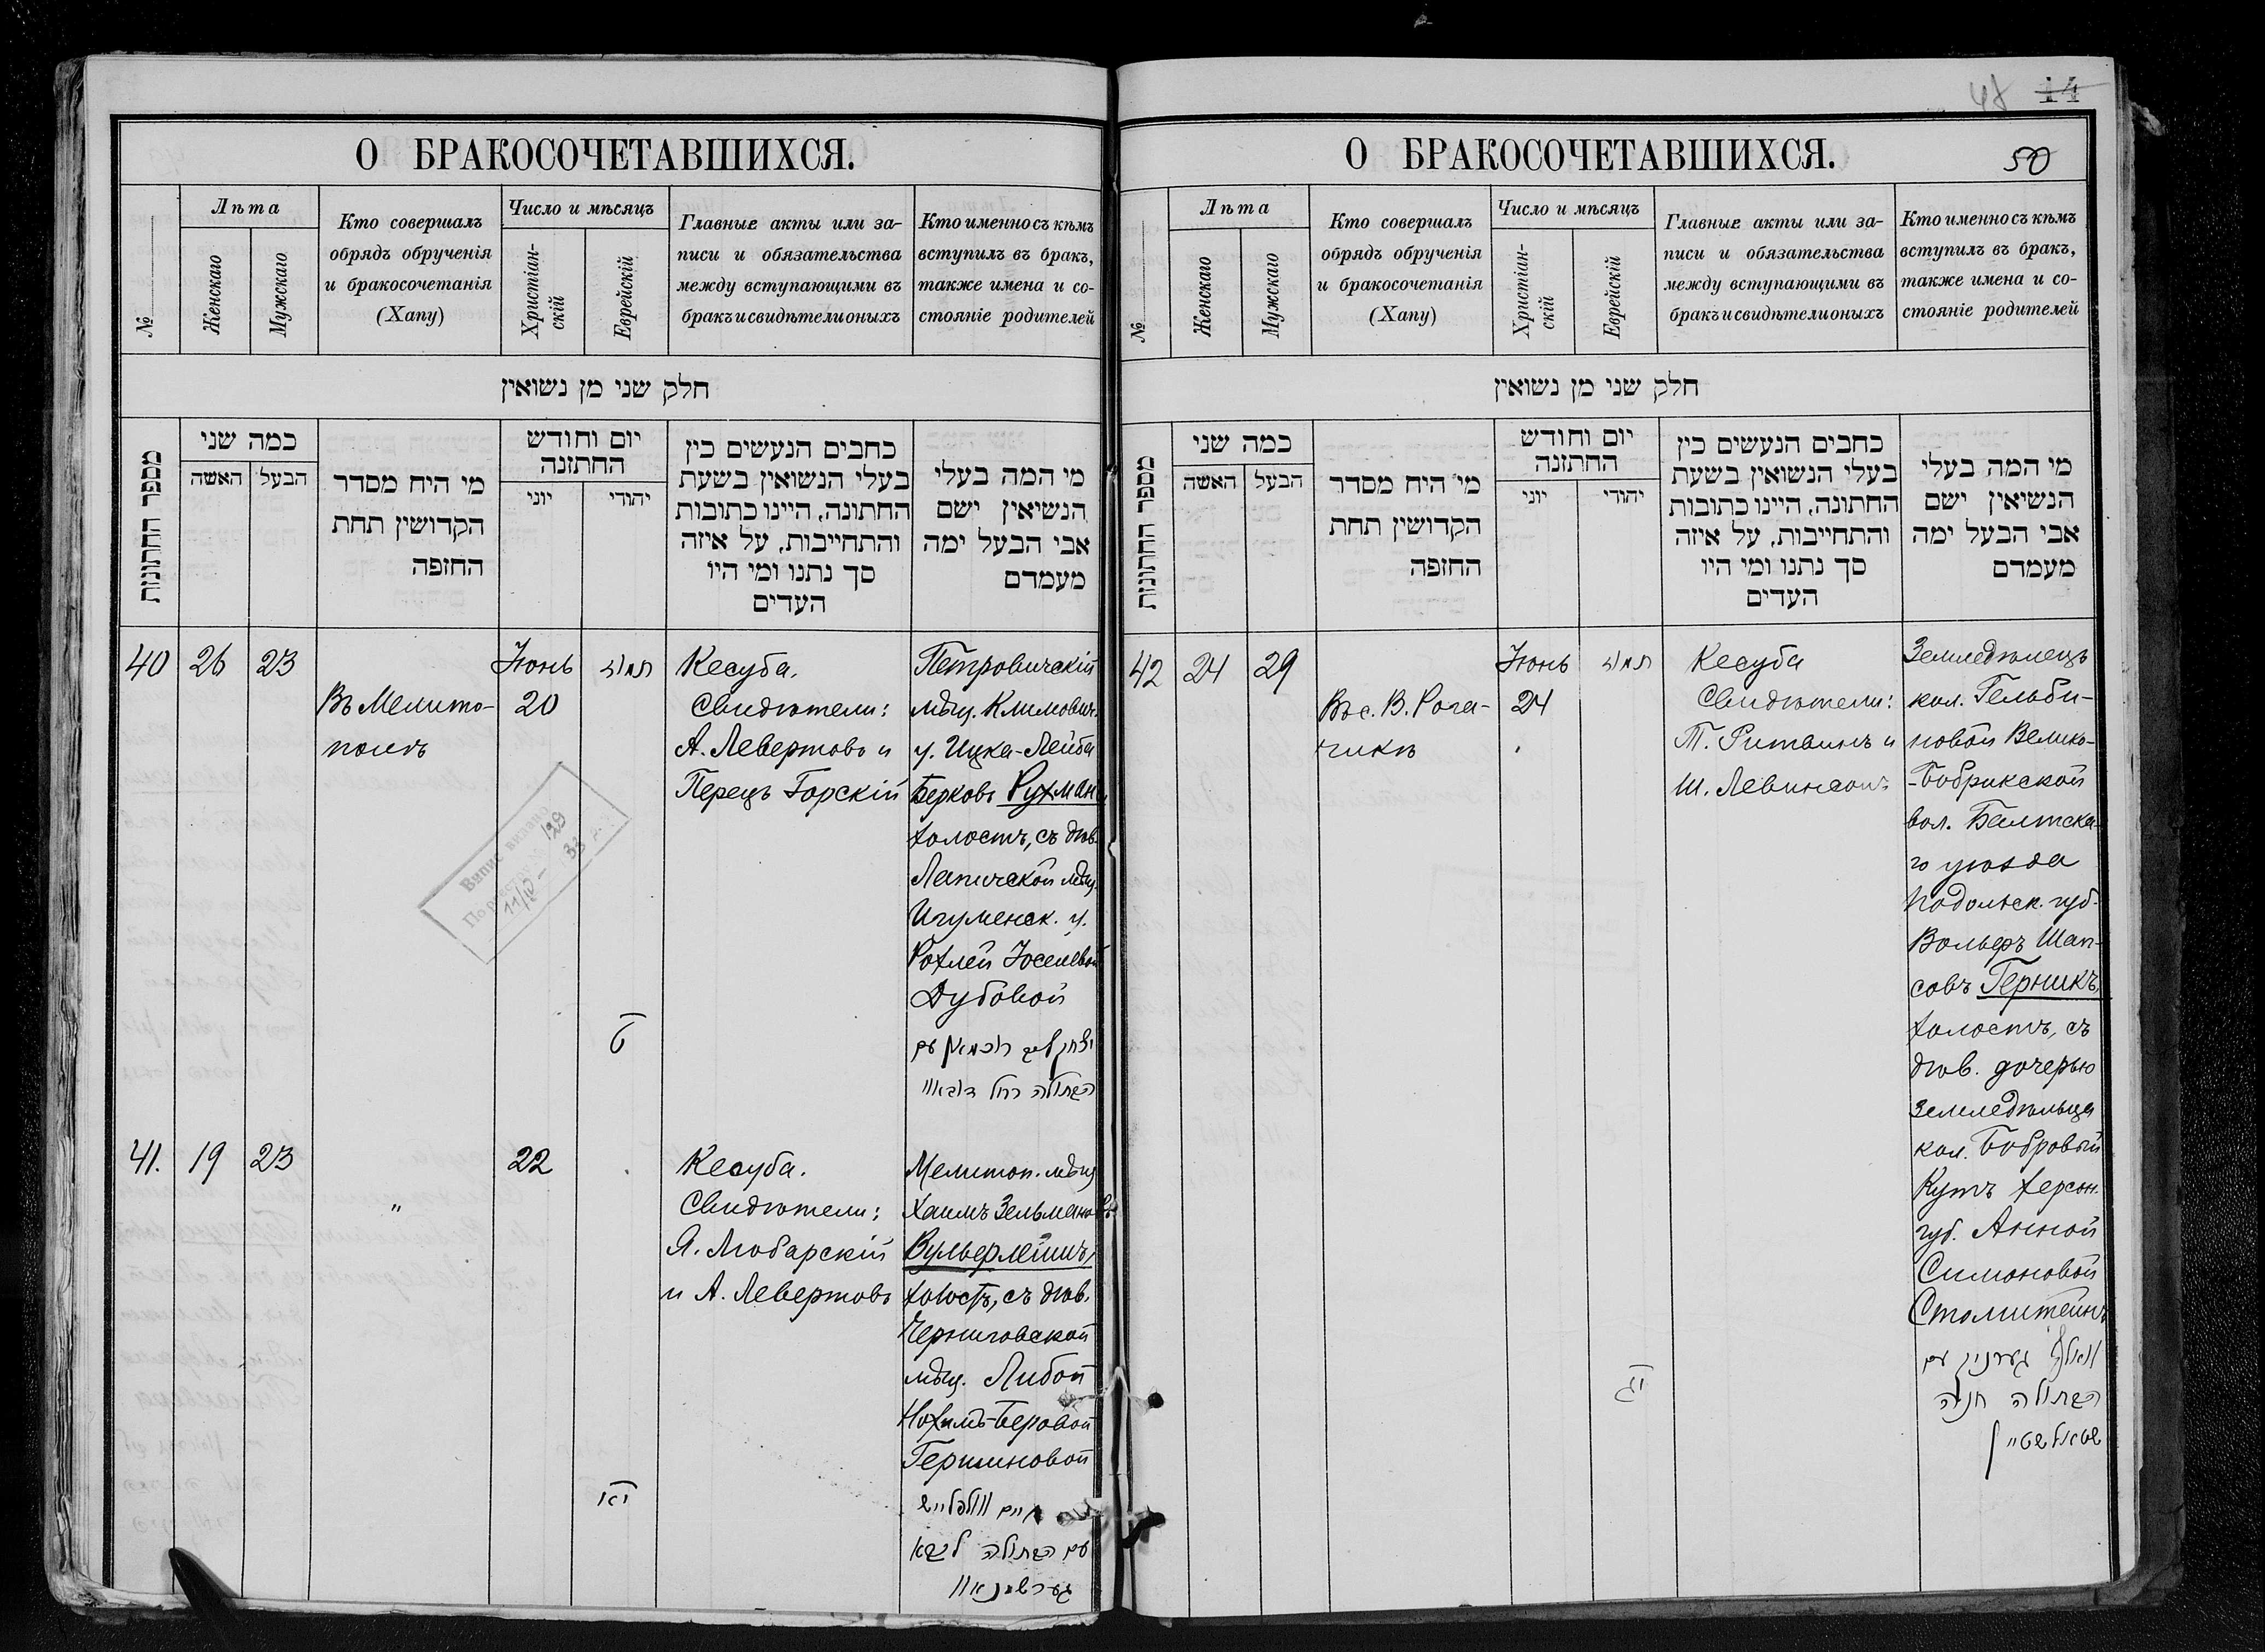 О БРАКОСОЧЕТАВШИХСЯ.
№
Лѣта
Женскаго
Мужскаго
Кто совершалъ
обрядъ обрученія
и бракосочетанія
(Хапу)
Число и мѣсяцъ
Христіан-
скій
Еврейскій
Главные акты или за-
писи и обязательства
между вступающими въ
бракъ и свидѣтели оныхъ
Кто именно съ кѣмъ
вступилъ въ бракъ,
также имена и со-
стояніе родителей
חלק שני מן נשואין
מספר החתונות
כמה שני
האשה
הבעל
מי היח מסדר
הקדושין תחת
החופה
יום וחודש
החתונה
יוני
יהודי
כחבים הנעשים כין
בעלי הנשואין בשעת
החתונה, היינו כתובות
והתחייבות, על איזה
סך נתנו ומי היו
העדים
מי המה בעלי
הנשיאין ישם
אבי הבעל ימה
מעמדם
40
26
23
Въ Мелито-
полѣ
Іюнь
20
תמוז
ט
Кесуба.
Свидѣтели:
А. Левертовъ и
Перецъ Горскій
Петровичскій
мѣщ. Климович.
у. Ицка-Лейба
Берковъ Рухман
холостъ, съ дѣв.
Лапичской мѣщ.
Игуменск. у.
Рохлей Іоселевой
Дубовой
יצחק לייב רוכמאן עם
הבתולה רחל דובאוו
41.
19
23
"
22
יא
Кесуба.
Свидѣтели:
Я. Любарскій
и А. Левертовъ
Мелитоп. мѣщ
Хаимъ Зельмановъ
Вульфлейшъ,
холостъ, съ дѣв.
Черниговской
мѣщ. Либой
Нохимъ-Беровой
Гершиновой
חיים וואלפלייש
עם הבתולה ליבא
גערשינאוו
Випис видано
По реестру №
129
11/IV – 33
48 14
О БРАКОСОЧЕТАВШИХСЯ.
50
№
Лѣта
Женскаго
Мужскаго
Кто совершалъ
обрядъ обрученія
и бракосочетанія
(Хапу)
Число и мѣсяцъ
Христіан-
скій
Еврейскій
Главные акты или за-
писи и обязательства
между вступающими въ
бракъ и свидѣтели оныхъ
Кто именно съ кѣмъ
вступилъ въ бракъ,
также имена и со-
стояніе родителей
חלק שני מן נשואין
מספר החתונות
כמה שני
האשה
הבעל
מי היח מסדר
הקדושין תחת
החופה
יום וחודש
החתונה
יוני
יהודי
כחבים הנעשים כין
בעלי הנשואין בשעת
החתונה, היינו כתובות
והתחייבות, על איזה
סך נתנו ומי היו
העדים
מי המה בעלי
הנשיאין ישם
אבי הבעל ימה
מעמדם
42
24
29
Въ с. В. Рога-
чикѣ
Іюнь
24
תמוז
יג
Кесуба
Свидѣтели:
Т. Ритвинъ и
Ш. Левинсонъ
Земледѣлецъ
кол. Гельби-
новой Велико-
-Бобрикской
вол. Балтска-
го уѣзда
Подольск. губ.
Вольфъ Шап-
совъ Герникъ,
холостъ, съ
дѣв. дочерью
земледѣльца
кол. Бобровый
Кутъ Херсон.
губ. Анной
Симоновой
Столштейнъ
וואלף גערניק עם
הבתולה חנה
שטאלשטיין